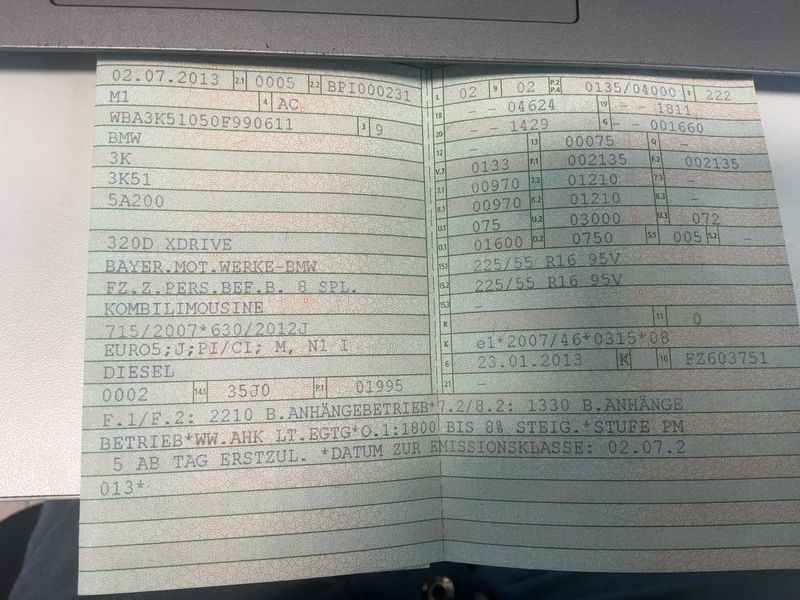 02.07.2013 2.1 0005 2.2 BPI000231
M1 4 AC
WBA3K51050F990611 3 9
BMW
3K
3K51
5A200
320D XDRIVE
BAYER.MOT.WERKE-BMW
FZ.Z.PERS.BEF.B. 8 SPL.
KOMBILIMOUSINE
715/2007*630/2012J
EURO5;J;PI/CI; M, N1 I
DIESEL
0002 14.1 35J0 P.1 01995
L 02 9 02 P.2 P.4 0135/04000 T 222
18 - - 04624 19 - - 1811
20 - - 1429 G - - 001660
12 - 13 00075 Q -
V.7 0133 F.1 002135 F.2 002135
7.1 00970 7.2 01210 7.3 -
8.1 00970 8.2 01210 8.3 -
U.1 075 U.2 03000 U.3 072
O.1 01600 O.2 0750 S.1 005 S.2 -
15.1 225/55 R16 95V
15.2 225/55 R16 95V
15.3 -
R 11 0
K e1*2007/46*0315*08
6 23.01.2013 K 16 FZ603751
21 -
F.1/F.2: 2210 B.ANHÄNGEBETRIEB*7.2/8.2: 1330 B.ANHÄNGE
BETRIEB*WW.AHK LT.EGTG*O.1:1800 BIS 8% STEIG.*STUFE PM
5 AB TAG ERSTZUL. *DATUM ZUR EMISSIONSKLASSE: 02.07.2
013*